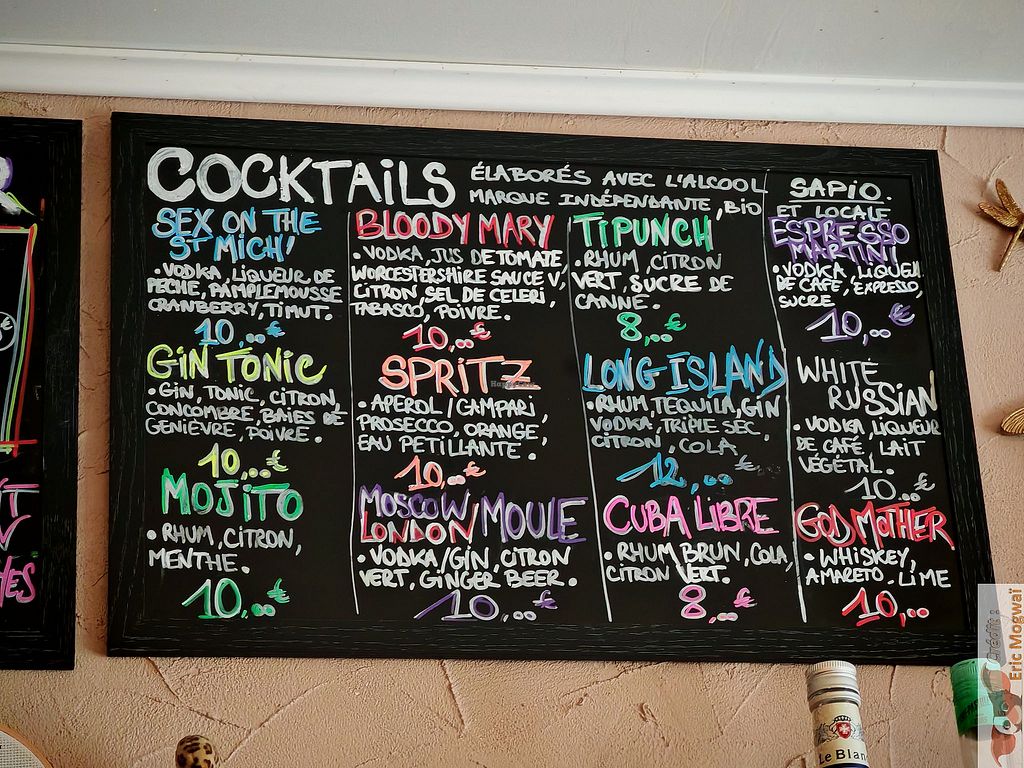 COCKTAILS
ÉLABORÉS AVEC L'ALCOOL SAPIO.
MARQUE INDÉPENDANTE, BIO ET LOCALE
SEX ON THE
ST MICH'
• VODKA, LIQUEUR DE
PECHE, PAMPLEMOUSSE
CRANBERRY, TIMUT.
10,..€
GIN TONIC
• GIN, TONIC, CITRON,
CONCOMBRE, BAIES DE
GENIÈVRE, POIVRE.
10,..€
MOJITO
• RHUM, CITRON,
MENTHE.
10,..€
BLOODY MARY
• VODKA, JUS DE TOMATE,
WORCESTERSHIRE SAUCE V,
CITRON, SEL DE CELERI,
TABASCO, POIVRE.
10,..€
SPRITZ
• APEROL / CAMPARI,
PROSECCO, ORANGE,
EAU PETILLANTE.
10,..€
MOSCOW
LONDON / MOULE
• VODKA/GIN, CITRON
VERT, GINGER BEER.
10,..€
TIPUNCH
• RHUM, CITRON
VERT, SUCRE DE
CANNE.
8,..€
LONG-ISLAND
• RHUM, TEQUILA, GIN
VODKA, TRIPLE SEC,
CITRON, COLA
12,..€
CUBA LIBRE
• RHUM BRUN, COLA,
CITRON VERT.
8,..€
ESPRESSO
MARTINI
• VODKA, LIQUEUR
DE CAFÉ, EXPRESSO,
SUCRE
10,..€
WHITE
RUSSIAN
• VODKA, LIQUEUR
DE CAFÉ, LAIT
VÉGÉTAL.
10..€
GODMOTHER
• WHISKEY,
AMARETO, LIME
10,..
Le Blan
Crédit :
Eric Mogwaï